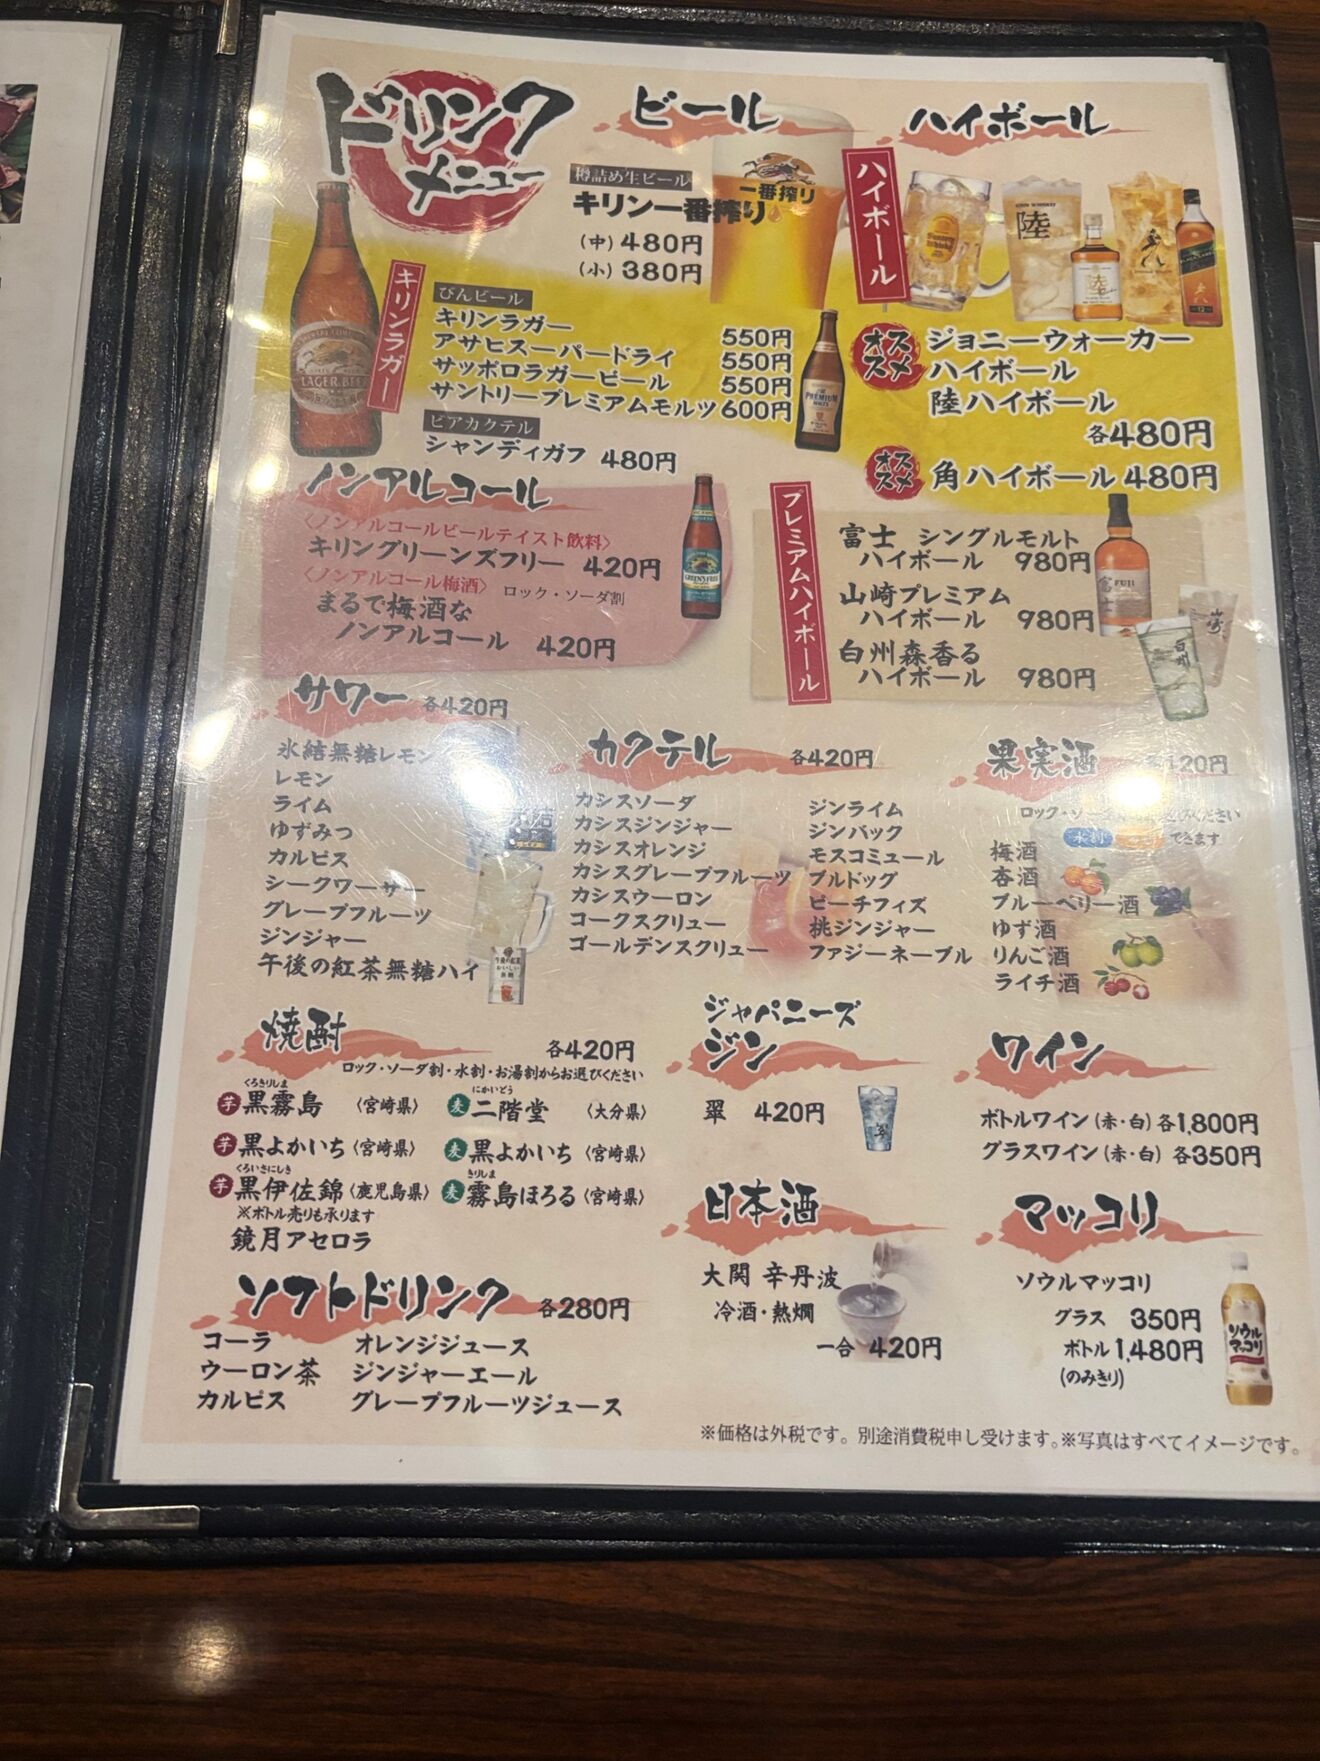 ドリンク
メニュー
ビール
樽詰め生ビール
キリン一番搾り
(中) 480円
(小) 380円
一番搾り
キリンラガー
LAGER BEER
びんビール
キリンラガー 550円
アサヒスーパードライ 550円
サッポロラガービール 550円
サントリープレミアムモルツ 600円
ビアカクテル
シャンディガフ 480円
ハイボール
ハイボール
陸
陸
オススメ
ジョニーウォーカー
ハイボール
陸ハイボール
各480円
オススメ
角ハイボール 480円
ノンアルコール
〈ノンアルコールビールテイスト飲料〉
キリングリーンズフリー 420円
〈ノンアルコール梅酒〉 ロック・ソーダ割
まるで梅酒な
ノンアルコール 420円
GREEN'S FREE
プレミアムハイボール
富士 シングルモルト
ハイボール 980円
山崎プレミアム
ハイボール 980円
白州森香る
ハイボール 980円
FUJI
富士
山崎
白州
サワー 各420円
氷結無糖レモン
レモン
ライム
ゆずみつ
カルピス
シークワーサー
グレープフルーツ
ジンジャー
午後の紅茶無糖ハイ
カクテル 各420円
カシスソーダ
カシスジンジャー
カシスオレンジ
カシスグレープフルーツ
カシスウーロン
コークスクリュー
ゴールデンスクリュー
ジンライム
ジンバック
モスコミュール
ブルドッグ
ピーチフィズ
桃ジンジャー
ファジーネーブル
果実酒 420円
ロック・ソーダ
水割
できます
梅酒
杏酒
ブルーベリー酒
ゆず酒
りんご酒
ライチ酒
焼酎 各420円
ロック・ソーダ割・水割・お湯割からお選びください
くろきりしま
芋 黒霧島 〈宮崎県〉
芋 黒よかいち 〈宮崎県〉
くろいさにしき
芋 黒伊佐錦 〈鹿児島県〉
※ボトル売りも承ります
鏡月アセロラ
にかいどう
麦 二階堂 〈大分県〉
麦 黒よかいち 〈宮崎県〉
きりしま
麦 霧島ほろる 〈宮崎県〉
ジャパニーズ
ジン
翠 420円
翠
ワイン
ボトルワイン (赤・白) 各1,800円
グラスワイン (赤・白) 各350円
日本酒
大関 辛丹波
冷酒・熱燗
一合 420円
マッコリ
ソウルマッコリ
グラス 350円
ボトル 1,480円
(のみきり)
ソウル
マッコリ
ソフトドリンク 各280円
コーラ
ウーロン茶
カルピス
オレンジジュース
ジンジャーエール
グレープフルーツジュース
※価格は外税です。別途消費税申し受けます。※写真はすべてイメージです。